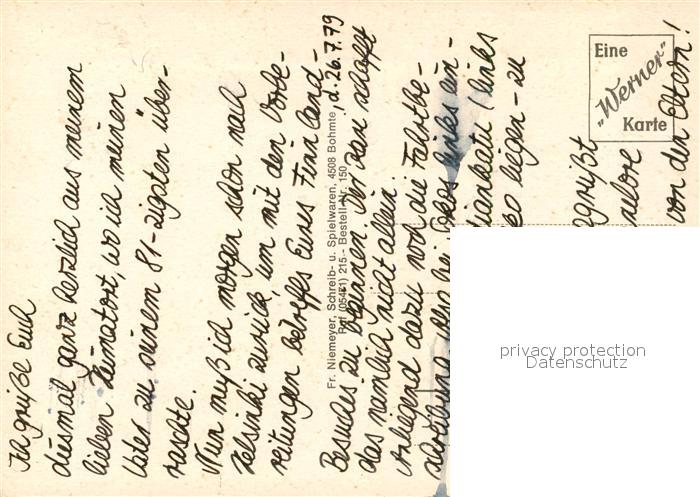 d. 26.7.79
Ich grüße Euch
diesmal ganz herzlich aus meinem
lieben Heimatort, wo ich meinen
Vater zu seinem 81-zigsten über-
raschte.
Nun muß ich morgen schon nach
Helsinki zurück, um mit den Vorbe-
reitungen betreffs Eures Finnland-
Besuches zu beginnen. Der Dau schafft
das nämlich nicht allein.
Anliegend dazu noch die Fahrtbe-
schreibung, also bei links ein-
(links
liegen - zu
grüßt
von den Eltern!
Fr. Niemeyer, Schreib- u. Spielwaren, 4508 Bohmte
Ruf (05471) 215 - Bestell-Nr. 150
Eine
„Werner"
Karte
privacy protection
Datenschutz